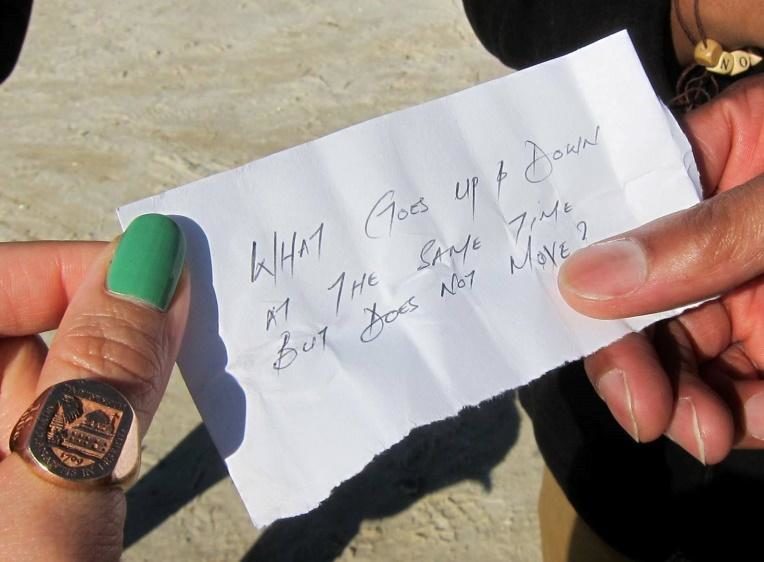 WHAT GOES UP & DOWN
AT THE SAME TIME
BUT DOES NOT MOVE?
NO
1799